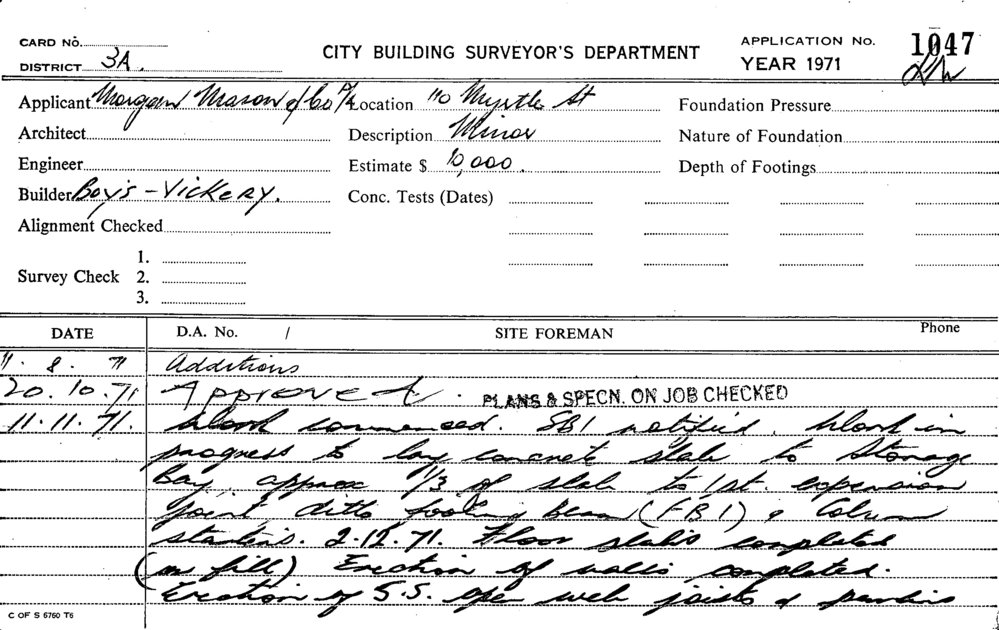 CARD No.
CITY BUILDING SURVEYOR'S DEPARTMENT
APPLICATION No. 1047
DISTRICT 3A.
YEAR 1971
Applicant Morgan Mason & Co P/L Location 110 Myrtle St Foundation Pressure
Architect Description Minor Nature of Foundation
Engineer Estimate $ 10,000. Depth of Footings
Builder Boy's - Vickery. Conc. Tests (Dates)
Alignment Checked
1.
Survey Check 2.
3.
DATE D.A. No. / SITE FOREMAN Phone
11. 8. 71 Additions
20. 10. 71 Approved. PLANS & SPECN. ON JOB CHECKED
11. 11. 71. Work commenced. notified. Work in
progress to lay concret slab to Storage
Bay, approx 1/3 of slab to 1st. expension
joint, ditto footing beam (FB1) & Column
starters. 2.12.71. Floor slabs completed
(on fill) Erection of walls completed.
Erection of S.S. open web joists & perlins
C OF S 6760 T6